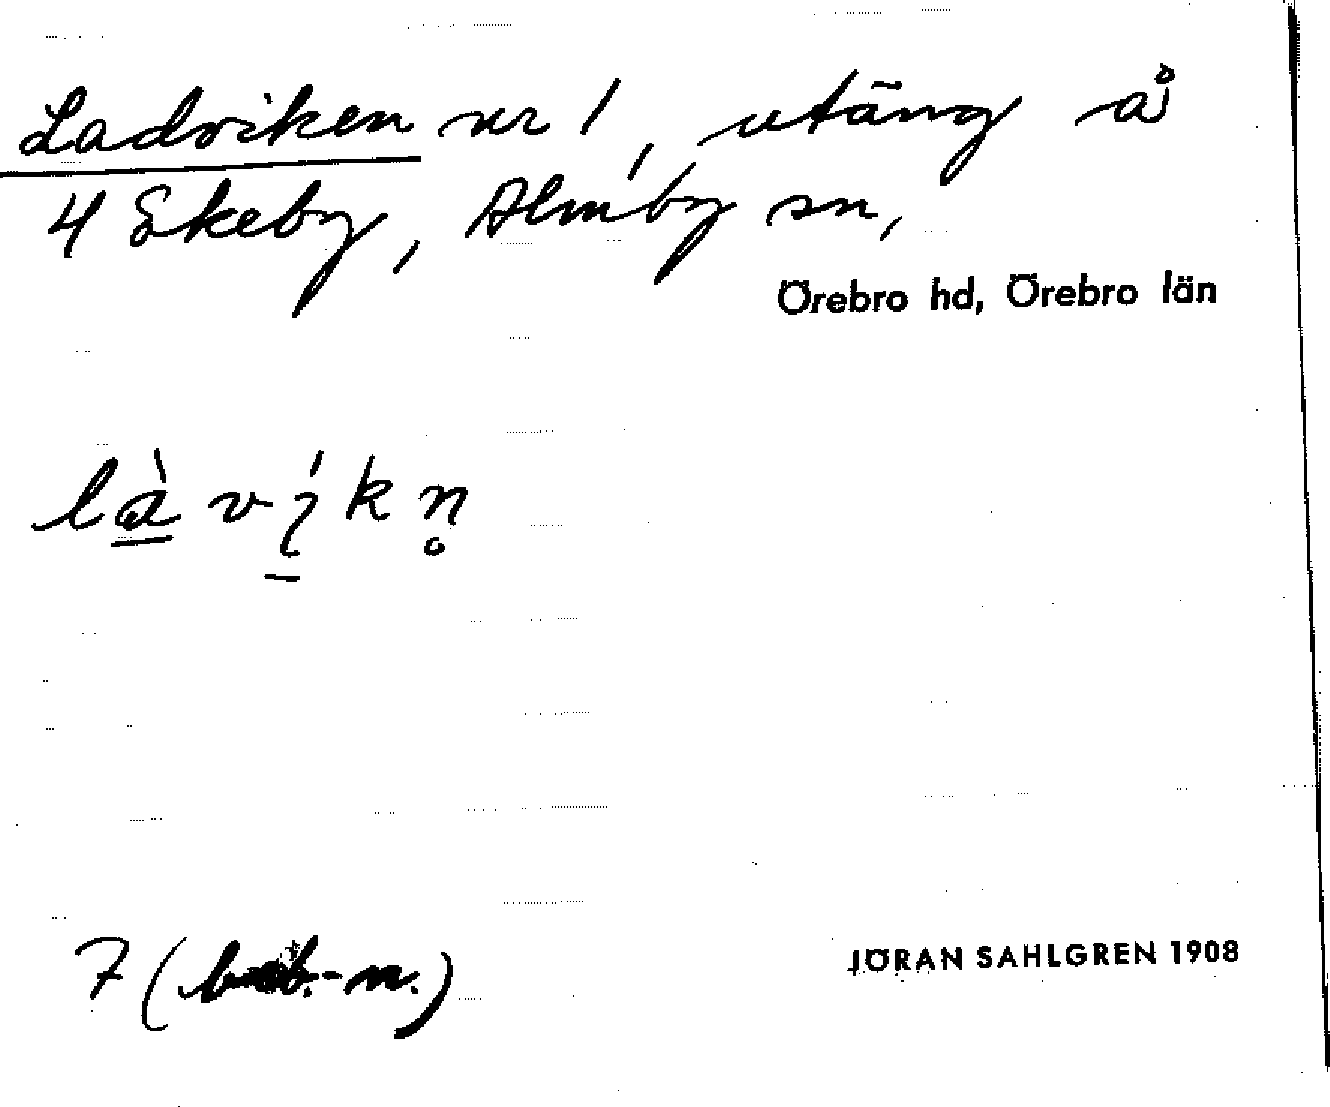 Ladviken nr 1, utäng å
4 Ekeby, Almby sn,
Örebro hd, Örebro län
là̱ví̱kn̥
7 (beb.-n.)
JÖRAN SAHLGREN 1908